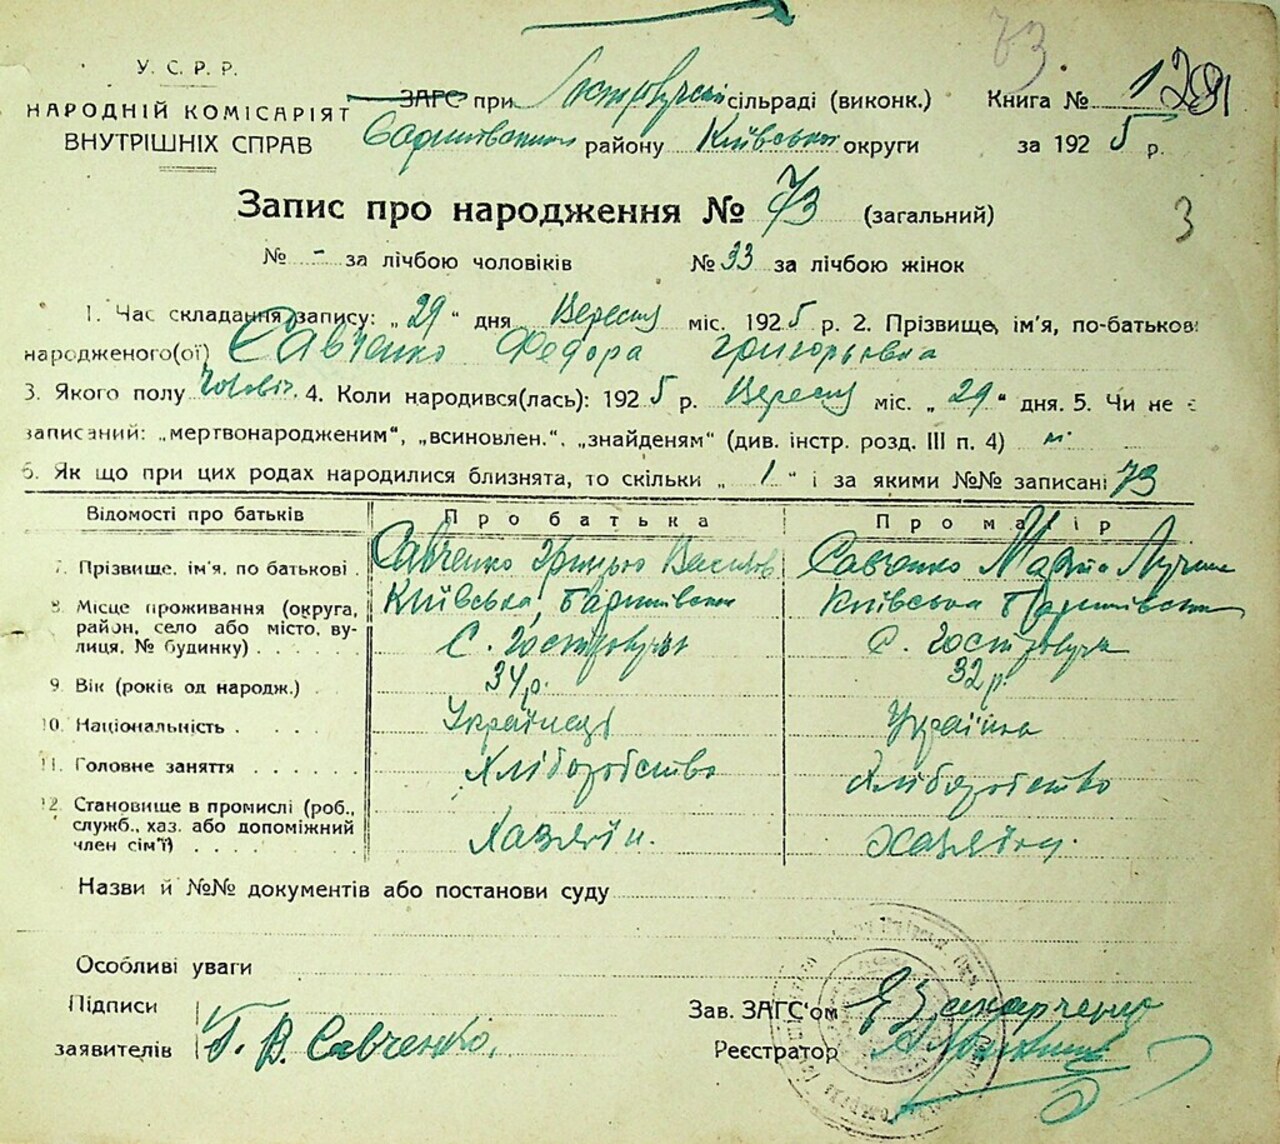 73
У. С. Р. Р.
НАРОДНІЙ КОМІСАРІЯТ
ВНУТРІШНІХ СПРАВ
ЗАГС при сільраді (виконк.) Книга № 1 129
району Київської округи за 1925 р.
Запис про народження № 73 (загальний)
3
№ - за лічбою чоловіків № 33 за лічбою жінок
1. Час складання запису: „29“ дня Вересня міс. 1925 р. 2. Прізвище, ім'я, по-батькові
народженого(ої) Савченко Федора Григорьевна
3. Якого полу 4. Коли народився(лась): 1925 р. Вересня міс. „29“ дня. 5. Чи не є
записаний: „мертвонародженим“, „всиновлен.“, „знайденям“ (див. інстр. розд. III п. 4) ні
6. Як що при цих родах народилися близнята, то скільки „1“ і за якими №№ записані 73
Відомості про батьків Про батька Про матір
7. Прізвище, ім'я, по батькові. Савченко Савченко
8. Місце проживання (округа, район, село або місто, вулиця, № будинку) Київська, Київська
С. с.
9. Вік (років од народж.) 34 р. 32 р.
10. Національність Українець Українка
11. Головне заняття Хліборобство Хліборобство
12. Становище в промислі (роб., служб., хаз. або допоміжний член сім'ї) Хазяїн. Хазяйка.
Назви й №№ документів або постанови суду
Особливі уваги
Підписи
заявителів Г. В. Савченко.
Зав. ЗАГС'ом Захарченко
Реєстратор